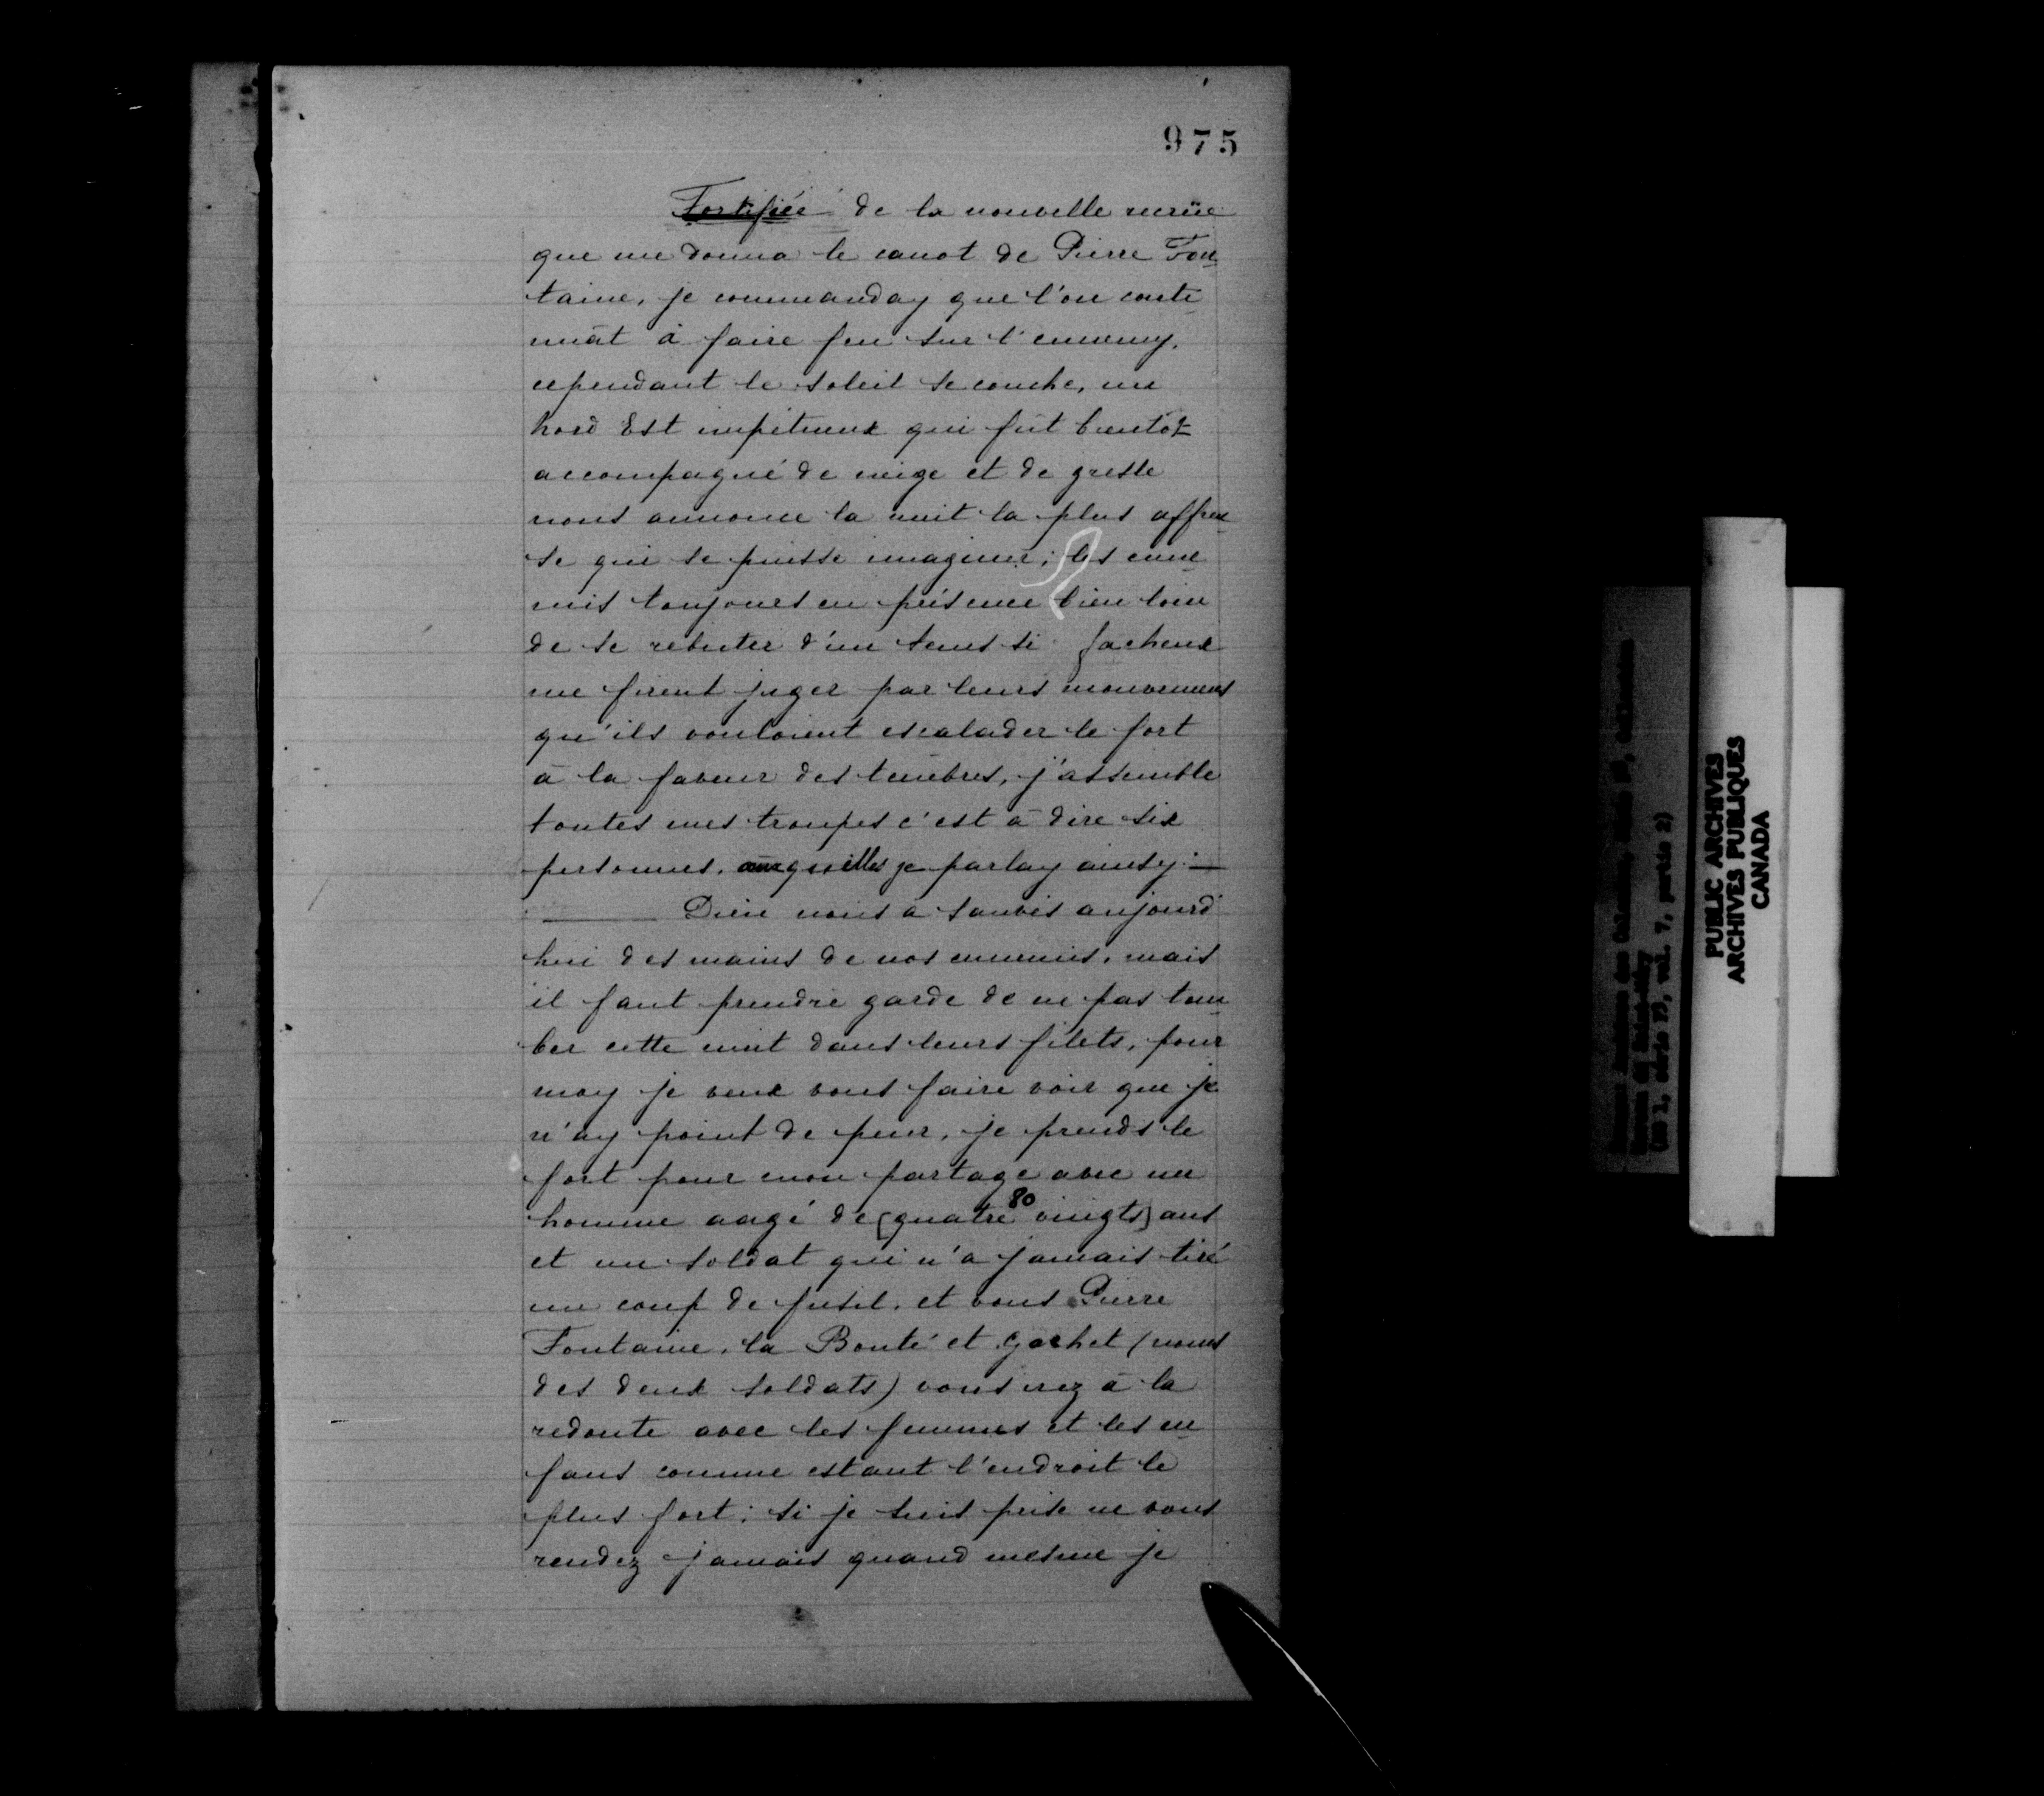 975
Fortifiée de la nouvelle recrüe
que me donna le canot de Pierre Fon
taine, je commanday que l'on conti
nuât à faire feu sur l'ennemy.
cependant le soleil se couche, un
hord Est impétueux qui fût bientôt
accompagné de neige et de gresle
nous annonce la nuit la plus affreu
se qui se puisse imaginer; les enne
mis toujours en présence bien loin
de se rebuter d'un tems si facheux
me firent juger par leurs mouvemens
qu'ils vouloient escalader le fort
à la faveur des tenebres, j'assemble
toutes mes troupes c'est à dire six
personnes, auxquelles je parlay ainsy:—
Dieu nous a sauvés aujourd
hui des mains de nos ennemis, mais
il faut prendre garde de ne pas tom
ber cette nuit dans leurs filets, pour
moy je veux vous faire voir que je
n'ay point de peur, je prends le
fort pour mon partage avec un
80
homme aagé de [quatre vingts] ans
et un soldat qui n'a jamais tiré
un coup de fusil, et vous Pierre
Fontaine, la Bonté et Gachet (noms
des deux soldats) vous irez à la
redoute avec les femmes et les en
fans comme estant l'endroit le
plus fort; si je suis prise ne vous
rendez jamais quand mesme je
PUBLIC ARCHIVES
ARCHIVES PUBLIQUES
CANADA
vol. 7, partie 2)